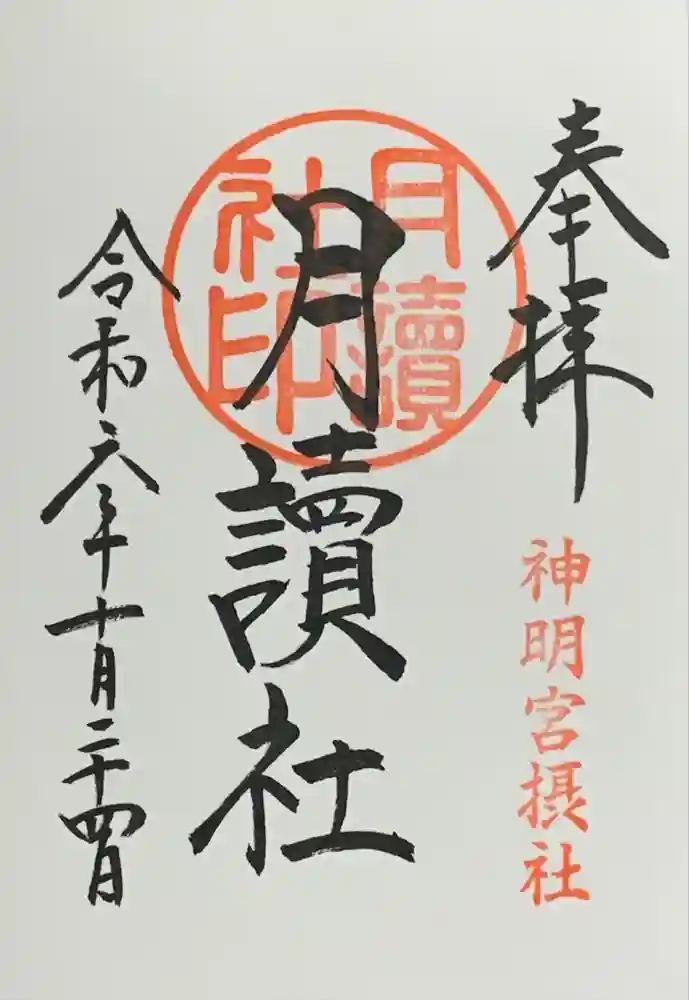 奉拝
神明宮摂社
月讀社印
月讀社
令和六年十月二十四日